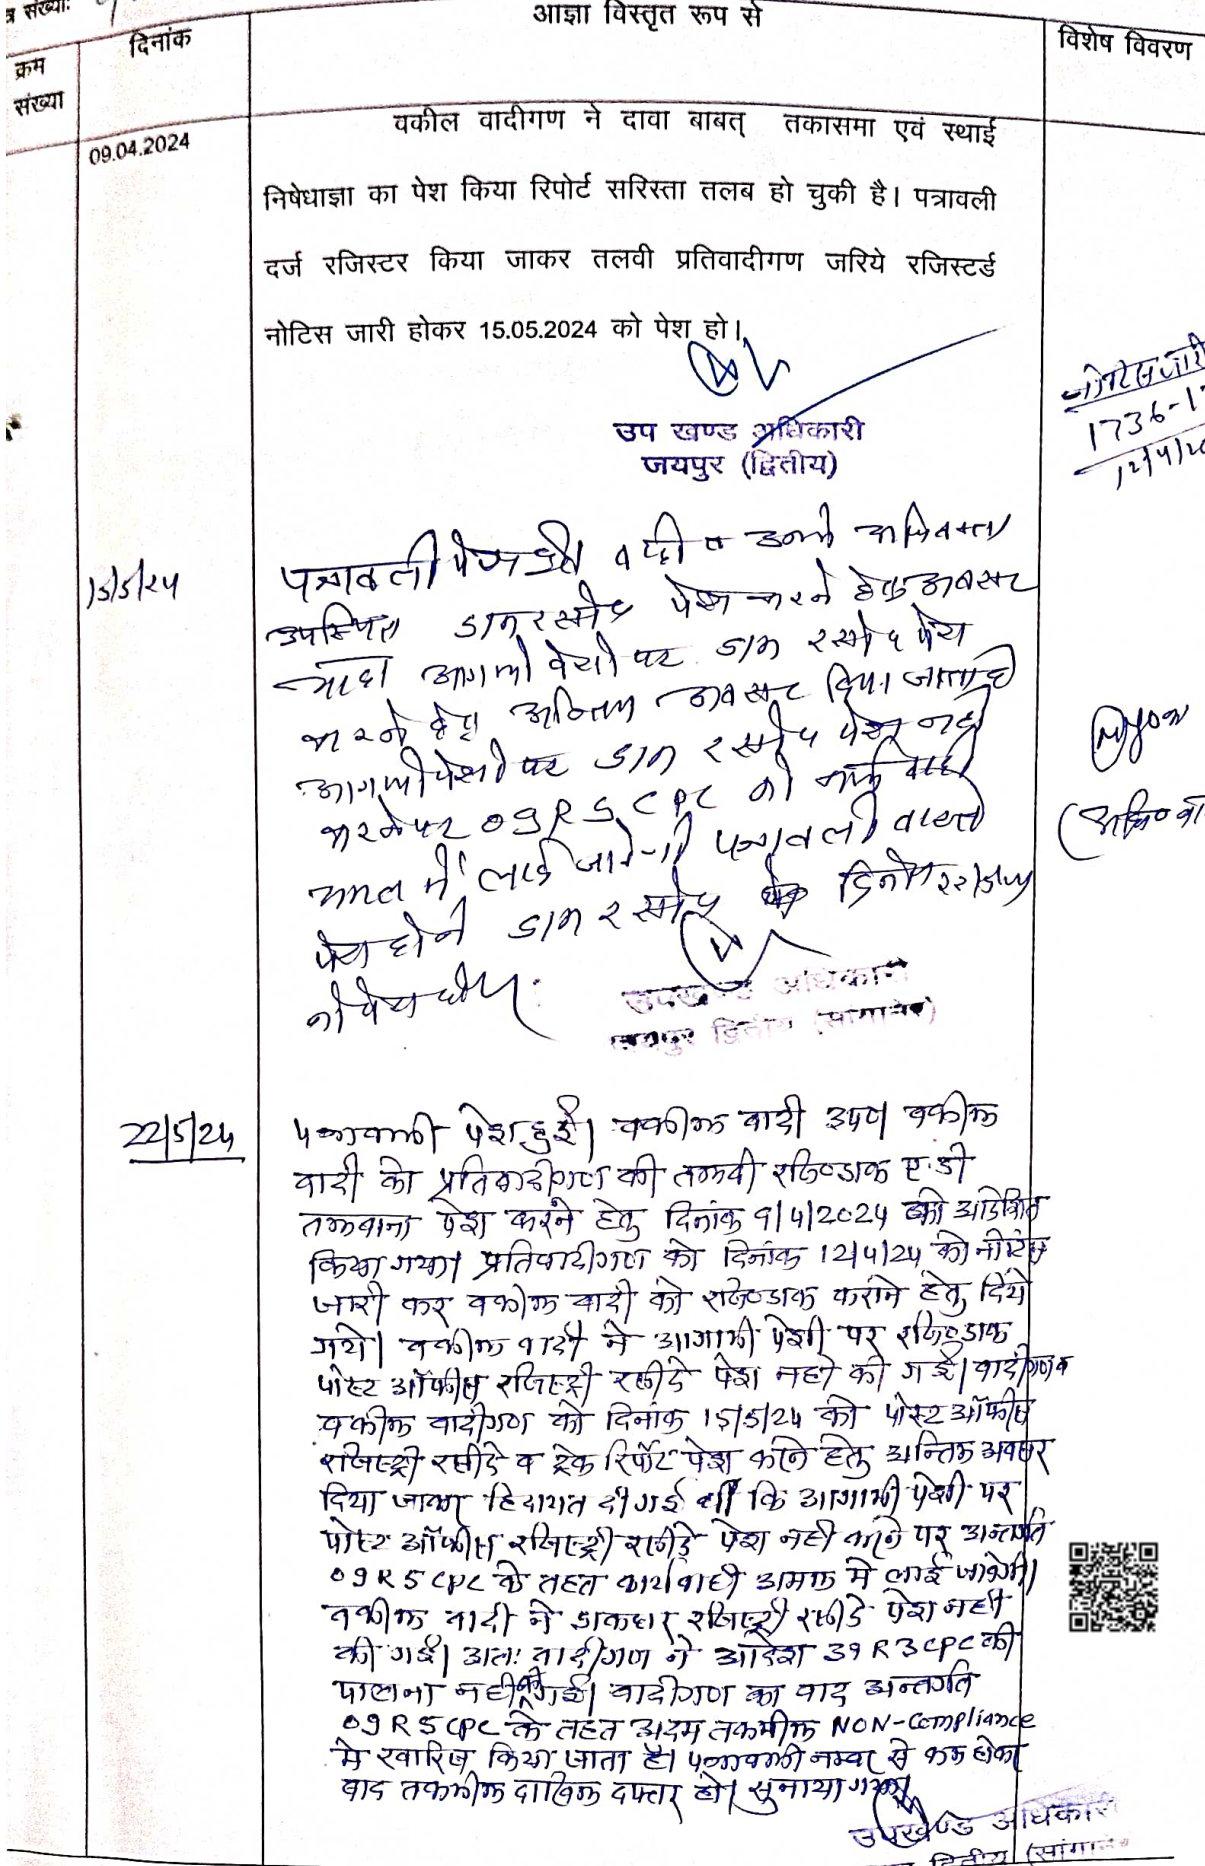 संख्याः
क्रम
संख्या
दिनांक
आज्ञा विस्तृत रूप से
विशेष विवरण
09.04.2024
वकील वादीगण ने दावा बाबत् तकासमा एवं स्थाई
निषेधाज्ञा का पेश किया रिपोर्ट सरिस्ता तलब हो चुकी है। पत्रावली
दर्ज रजिस्टर किया जाकर तलवी प्रतिवादीगण जरिये रजिस्टर्ड
नोटिस जारी होकर 15.05.2024 को पेश हो।
उप खण्ड अधिकारी
जयपुर (द्वितीय)
नोटिस जारी
1736-1
12/4/2
15/5/24
पत्रावली पेश हुई वादी व उनके अधिवक्ता
उपस्थित डाक रसीद पेश करने हेतु अवसर
चाहा आगामी पेशी पर डाक रसीद पेश
करने हेतु अन्तिम अवसर दिया जाता है
आगामी पेशी पर डाक रसीद पेश नही
करने पर 09 R 5 CPC की कार्यवाही
अमल में लाई जावेगी पत्रावली वास्ते
पेश होने डाक रसीद दिनांक 22/5/24
को पेश होवे
उपखण्ड अधिकारी
जयपुर द्वितीय (सांगानेर)
22/5/24
पत्रावली पेश हुई। वकील वादी उप० वकील
वादी को प्रतिवादीगण की तलवी रजि०डाक ए.डी
तलवाना पेश करने हेतु दिनांक 9/4/2024 को आदेशित
किया गया। प्रतिवादीगण को दिनांक 12/4/24 को नोटिस
जारी कर वकील वादी को रजि०डाक कराने हेतु दिये
गये। वकील वादी ने आगामी पेशी पर रजि०डाक
पोस्ट ऑफीस रजिस्ट्री रसीदे पेश नही की गई। वादीगण व
वकील वादीगण को दिनांक 15/5/24 को पोस्ट ऑफीस
रजिस्ट्री रसीदे व ट्रेक रिर्पोट पेश करने हेतु अन्तिम अवसर
दिया जाकर हिदायत दी गई थी कि आगामी पेशी पर
पोस्ट ऑफीस रजिस्ट्री रसीदे पेश नही करने पर अन्तर्गत
09 R 5 CPC के तहत कार्यवाही अमल मे लाई जावेगी।
वकील वादी ने डाकघर रजिस्ट्री रसीदे पेश नही
की गई। अतः वादीगण ने आदेश 39 R 3 CPC की
पालना नही की गई। वादीगण का वाद अन्तर्गत
09 R 5 CPC के तहत अदम तकमील NON-Compliance
मे खारिज किया जाता है। पत्रावली नम्बर से कम होकर
बाद तकमील दाखिल दफ्तर हो। सुनाया गया।
उपखण्ड अधिकारी
द्वितीय (सांगाने